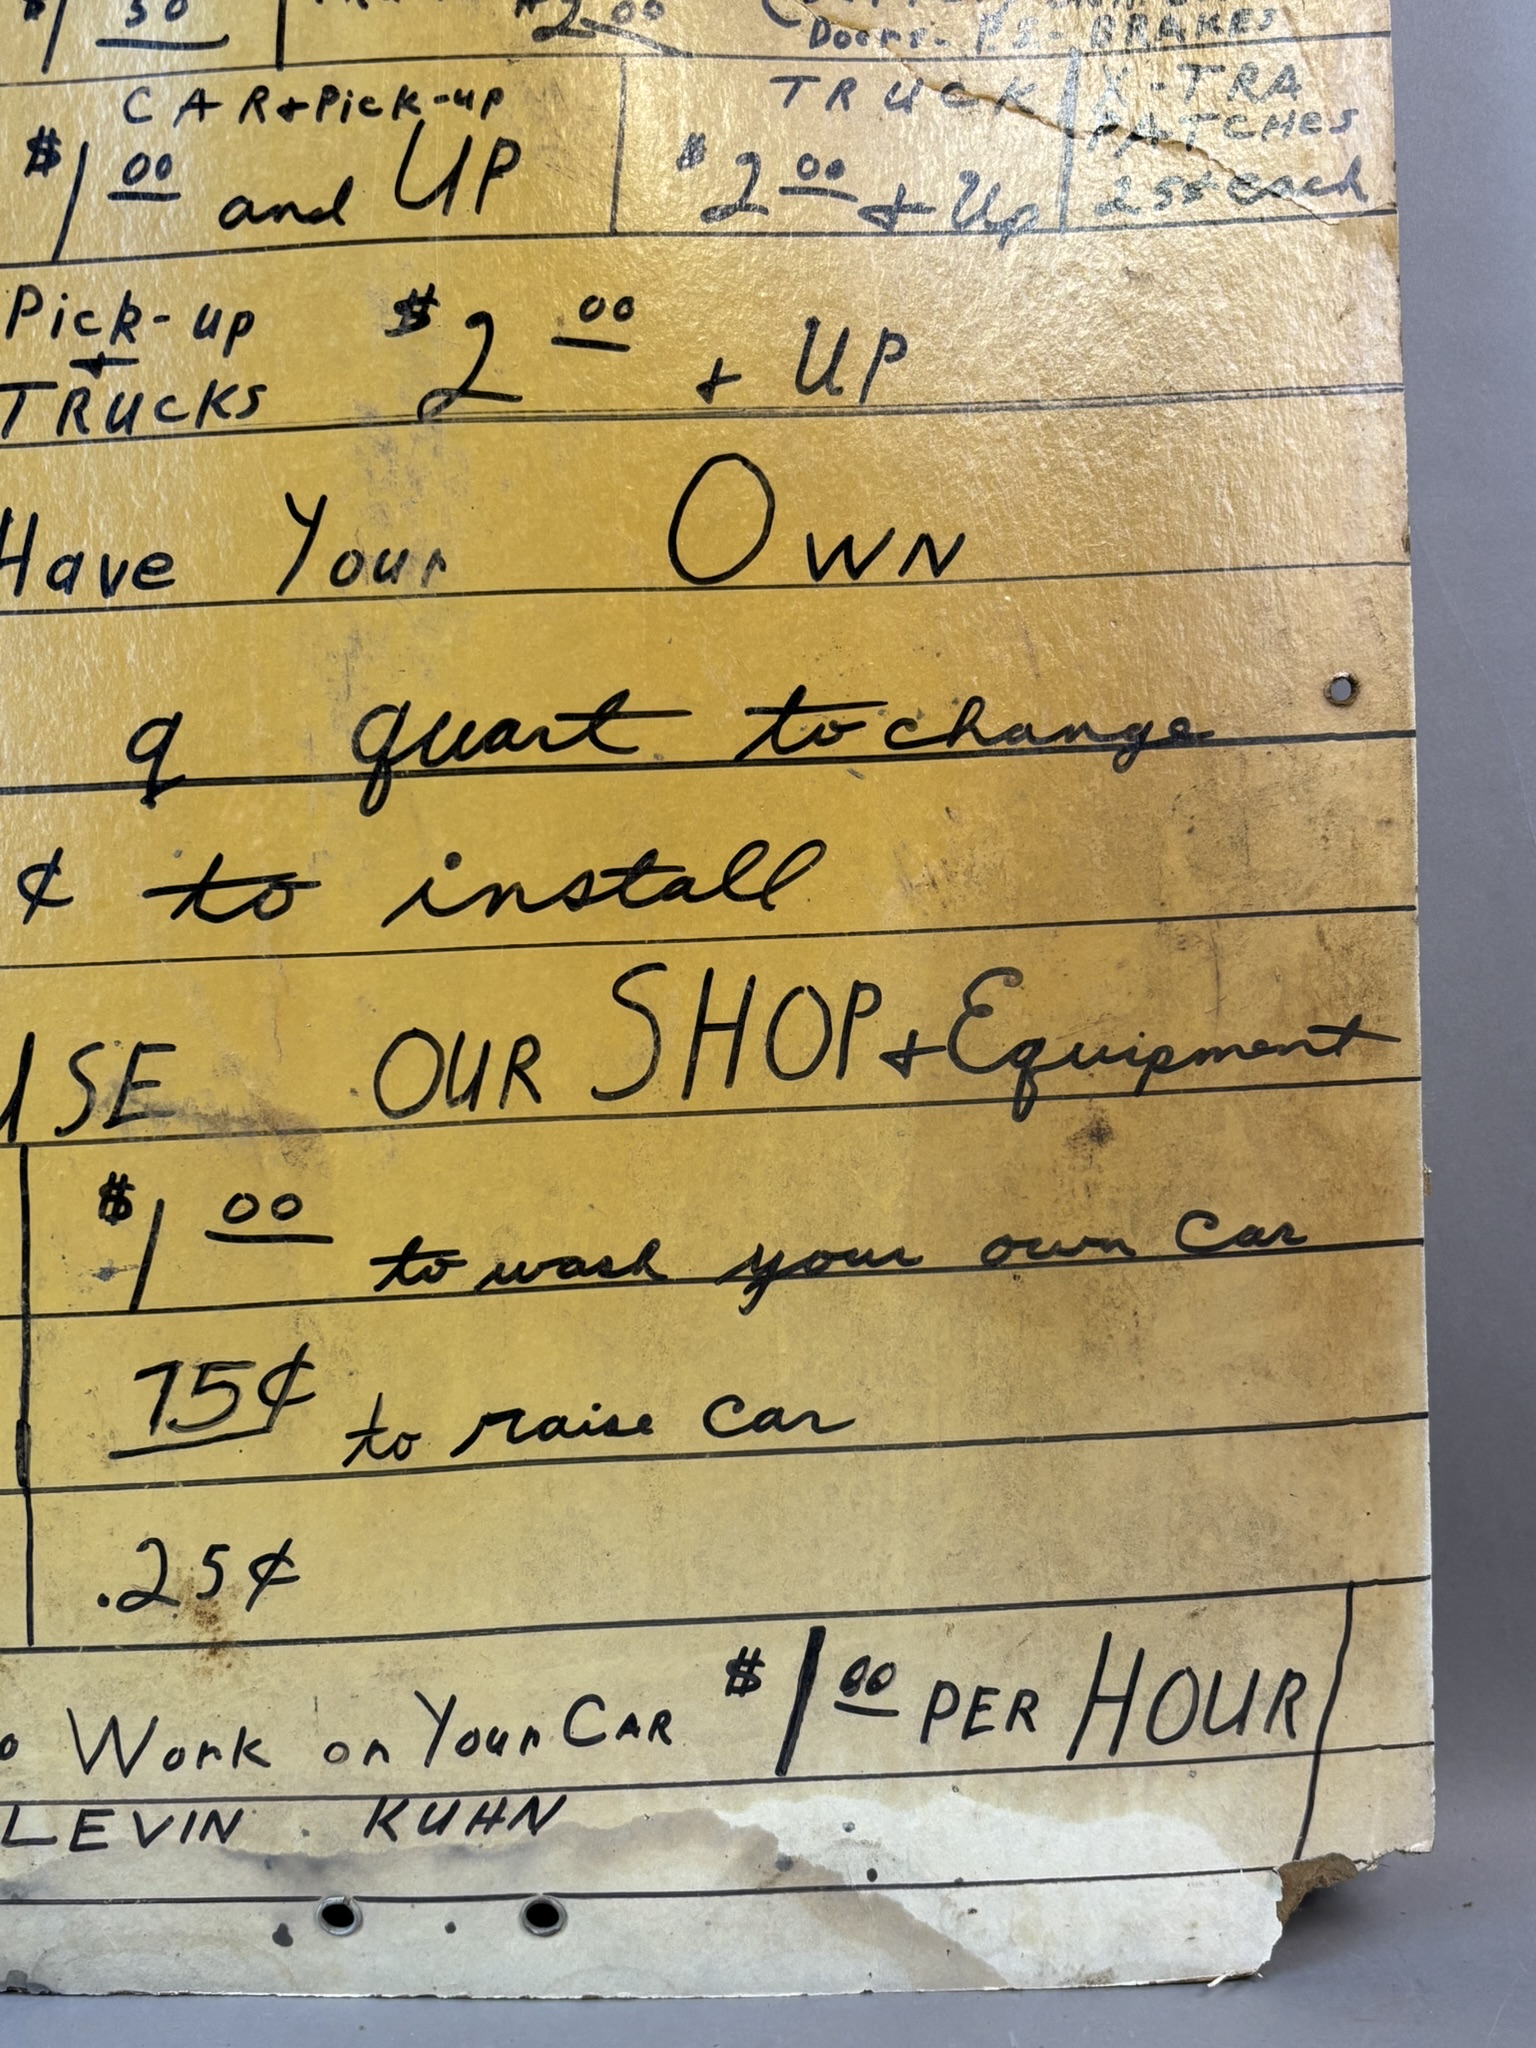 $1 50 $2.00
Doors - P.S - BRAKES
CAR + Pick-up TRUCK X-TRA
PATCHES
$1 00 and UP $2 00 + Up 25¢ each
Pick-up
+
TRUCKS $2 00 + UP
Have Your Own
a quart to change
¢ to install
USE OUR SHOP + Equipment
$1 00 to wash your own car
75¢ to raise car
.25¢
Work on Your CAR $1 00 PER HOUR
LEVIN KUHN